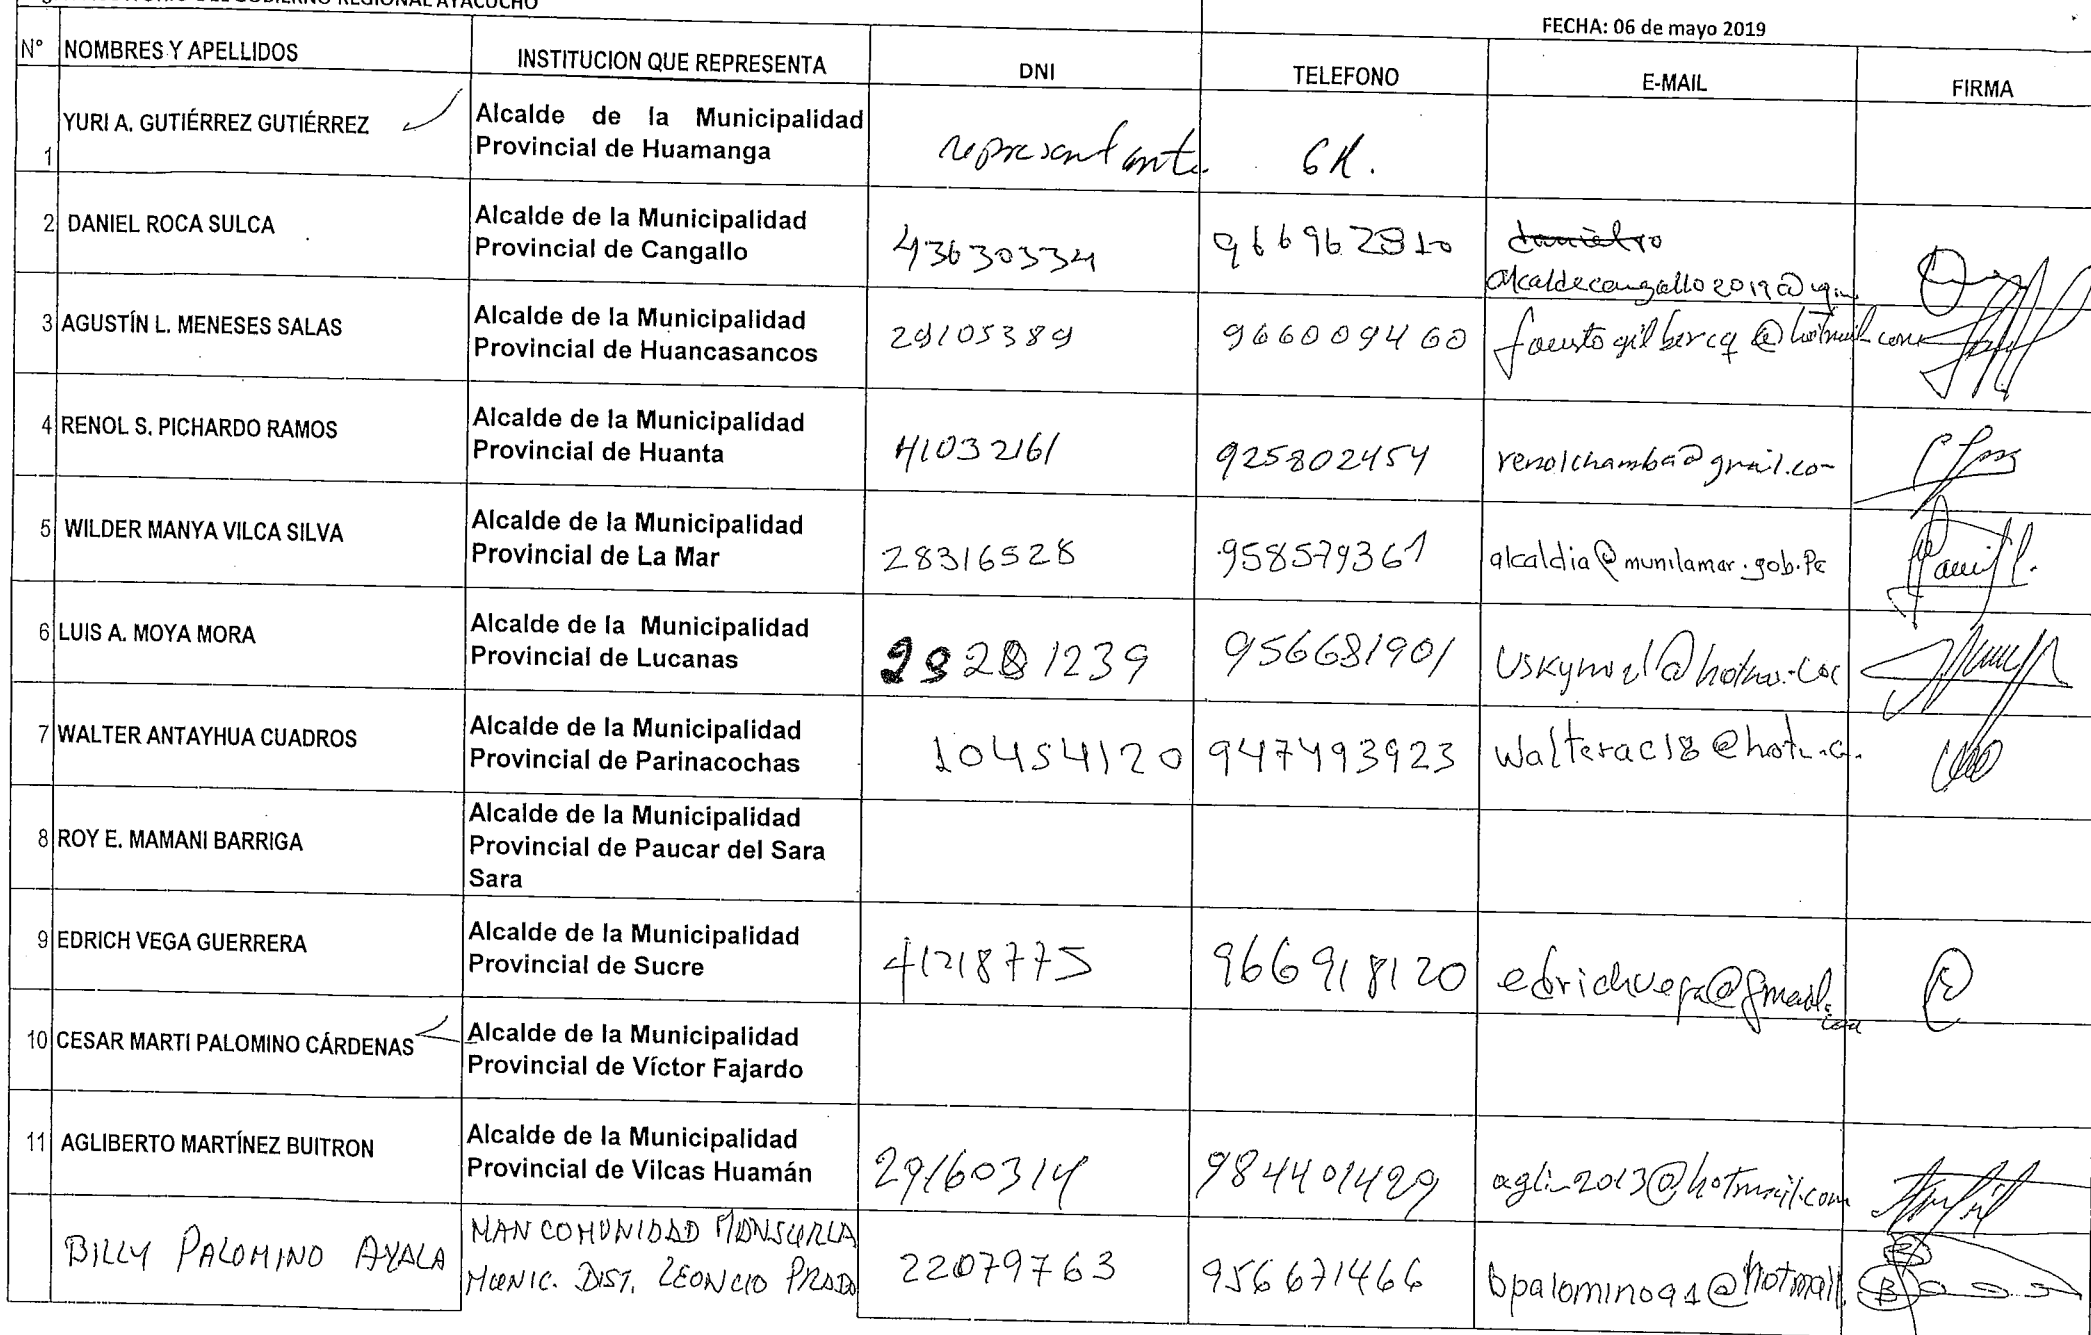 GOBIERNO REGIONAL AYACUCHO
FECHA: 06 de mayo 2019
N° NOMBRES Y APELLIDOS INSTITUCION QUE REPRESENTA DNI TELEFONO E-MAIL FIRMA
1 YURI A. GUTIÉRREZ GUTIÉRREZ Alcalde de la Municipalidad
Provincial de Huamanga representante
2 DANIEL ROCA SULCA Alcalde de la Municipalidad
Provincial de Cangallo 43630334 966962810 danielro
alcaldecangallo2019@
3 AGUSTÍN L. MENESES SALAS Alcalde de la Municipalidad
Provincial de Huancasancos 29105389 966009460 faustogilbercq@hotmail.com
4 RENOL S. PICHARDO RAMOS Alcalde de la Municipalidad
Provincial de Huanta 41032161 925802454 renolchamba@gmail.co
5 WILDER MANYA VILCA SILVA Alcalde de la Municipalidad
Provincial de La Mar 28316528 958579361 alcaldia@munilamar.gob.Pe
6 LUIS A. MOYA MORA Alcalde de la Municipalidad
Provincial de Lucanas 956681901
7 WALTER ANTAYHUA CUADROS Alcalde de la Municipalidad
Provincial de Parinacochas 10454120 947493923 walterac18@hot
8 ROY E. MAMANI BARRIGA Alcalde de la Municipalidad
Provincial de Paucar del Sara
Sara
9 EDRICH VEGA GUERRERA Alcalde de la Municipalidad
Provincial de Sucre 41218775 966918120 edrichvega@gmail.
com
10 CESAR MARTI PALOMINO CÁRDENAS Alcalde de la Municipalidad
Provincial de Víctor Fajardo
11 AGLIBERTO MARTÍNEZ BUITRON Alcalde de la Municipalidad
Provincial de Vilcas Huamán 29160314 984401429 agli_2013@hotmail.com
BILLY PALOMINO AYALA MANCOMUNIDAD
MUNIC. DIST. LEONCIO PRADO 22079763 956671466 bpalomino91@hotmail.